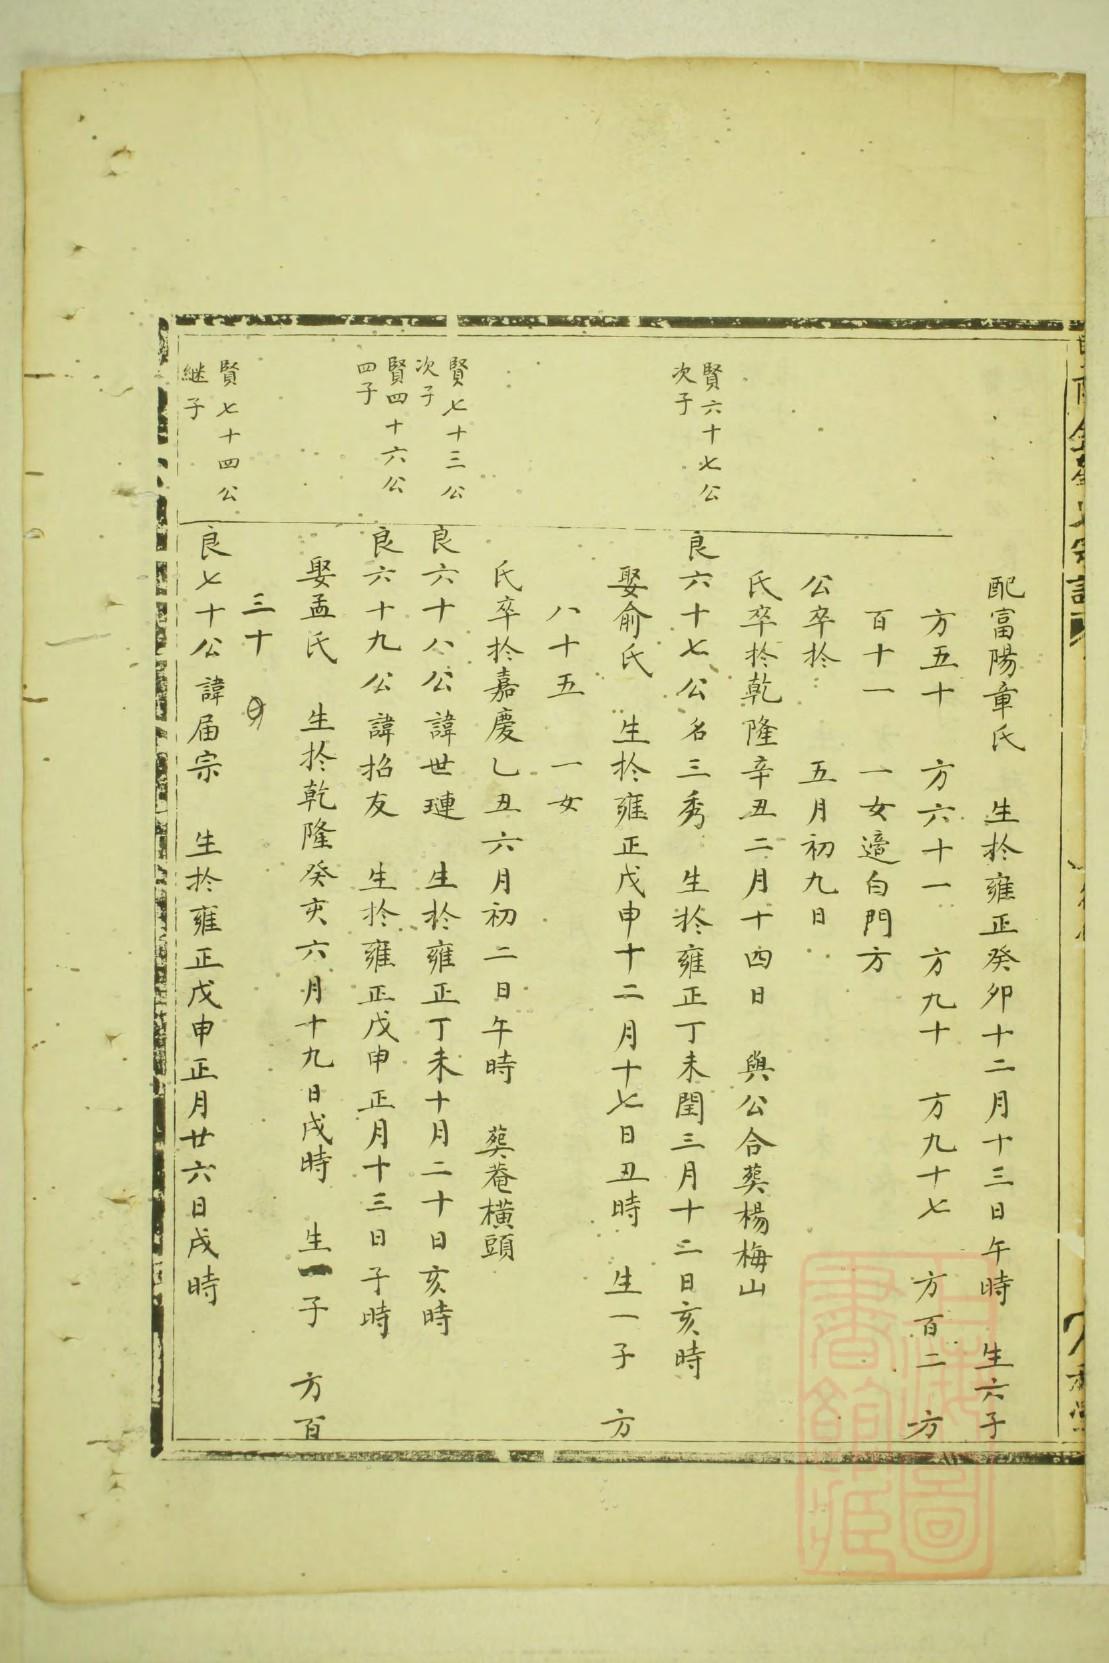 配富陽章氏 生於雍正癸卯十二月十三日午時 生六子
方五十 方六十一 方九十 方九十七 方百二 方
百十一 一女適白門方
公卒於 五月初九日
氏卒於乾隆辛丑二月十四日 與公合葬楊梅山
賢六十七公
次子
良六十七公名三秀 生於雍正丁未閏三月十二日亥時
娶俞氏 生於雍正戊申十二月十七日丑時 生一子 方
八十五 一女
氏卒於嘉慶乙丑六月初二日午時 葬菴橫頭
賢七十三公
次子
良六十八公諱世璉 生於雍正丁未十月二十日亥時
賢四十六公
四子
良六十九公諱招友 生於雍正戊申正月十三日子時
娶孟氏 生於乾隆癸亥六月十九日戌時 生一子 方百
三十
賢七十四公
継子
良七十公諱届宗 生於雍正戊申正月廿六日戌時
上海圖
書館藏